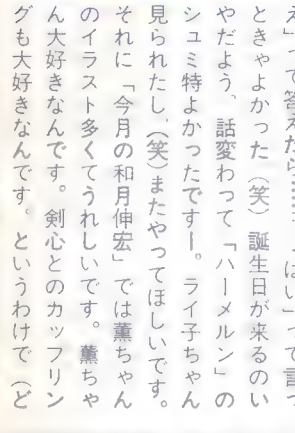 え」って答えたら……「はい」って言っ
ときゃよかった（笑）誕生日が来るのい
やだよう、話変わって「ハーメルン」の
シュミ特よかったですー。ライ子ちゃん
見られたし、（笑）またやってほしいです。
それに「今月の和月伸宏」では薫ちゃん
のイラスト多くてうれしいです。薫ちゃ
ん大好きなんです。剣心とのカップリン
グも大好きなんです。というわけで（ど